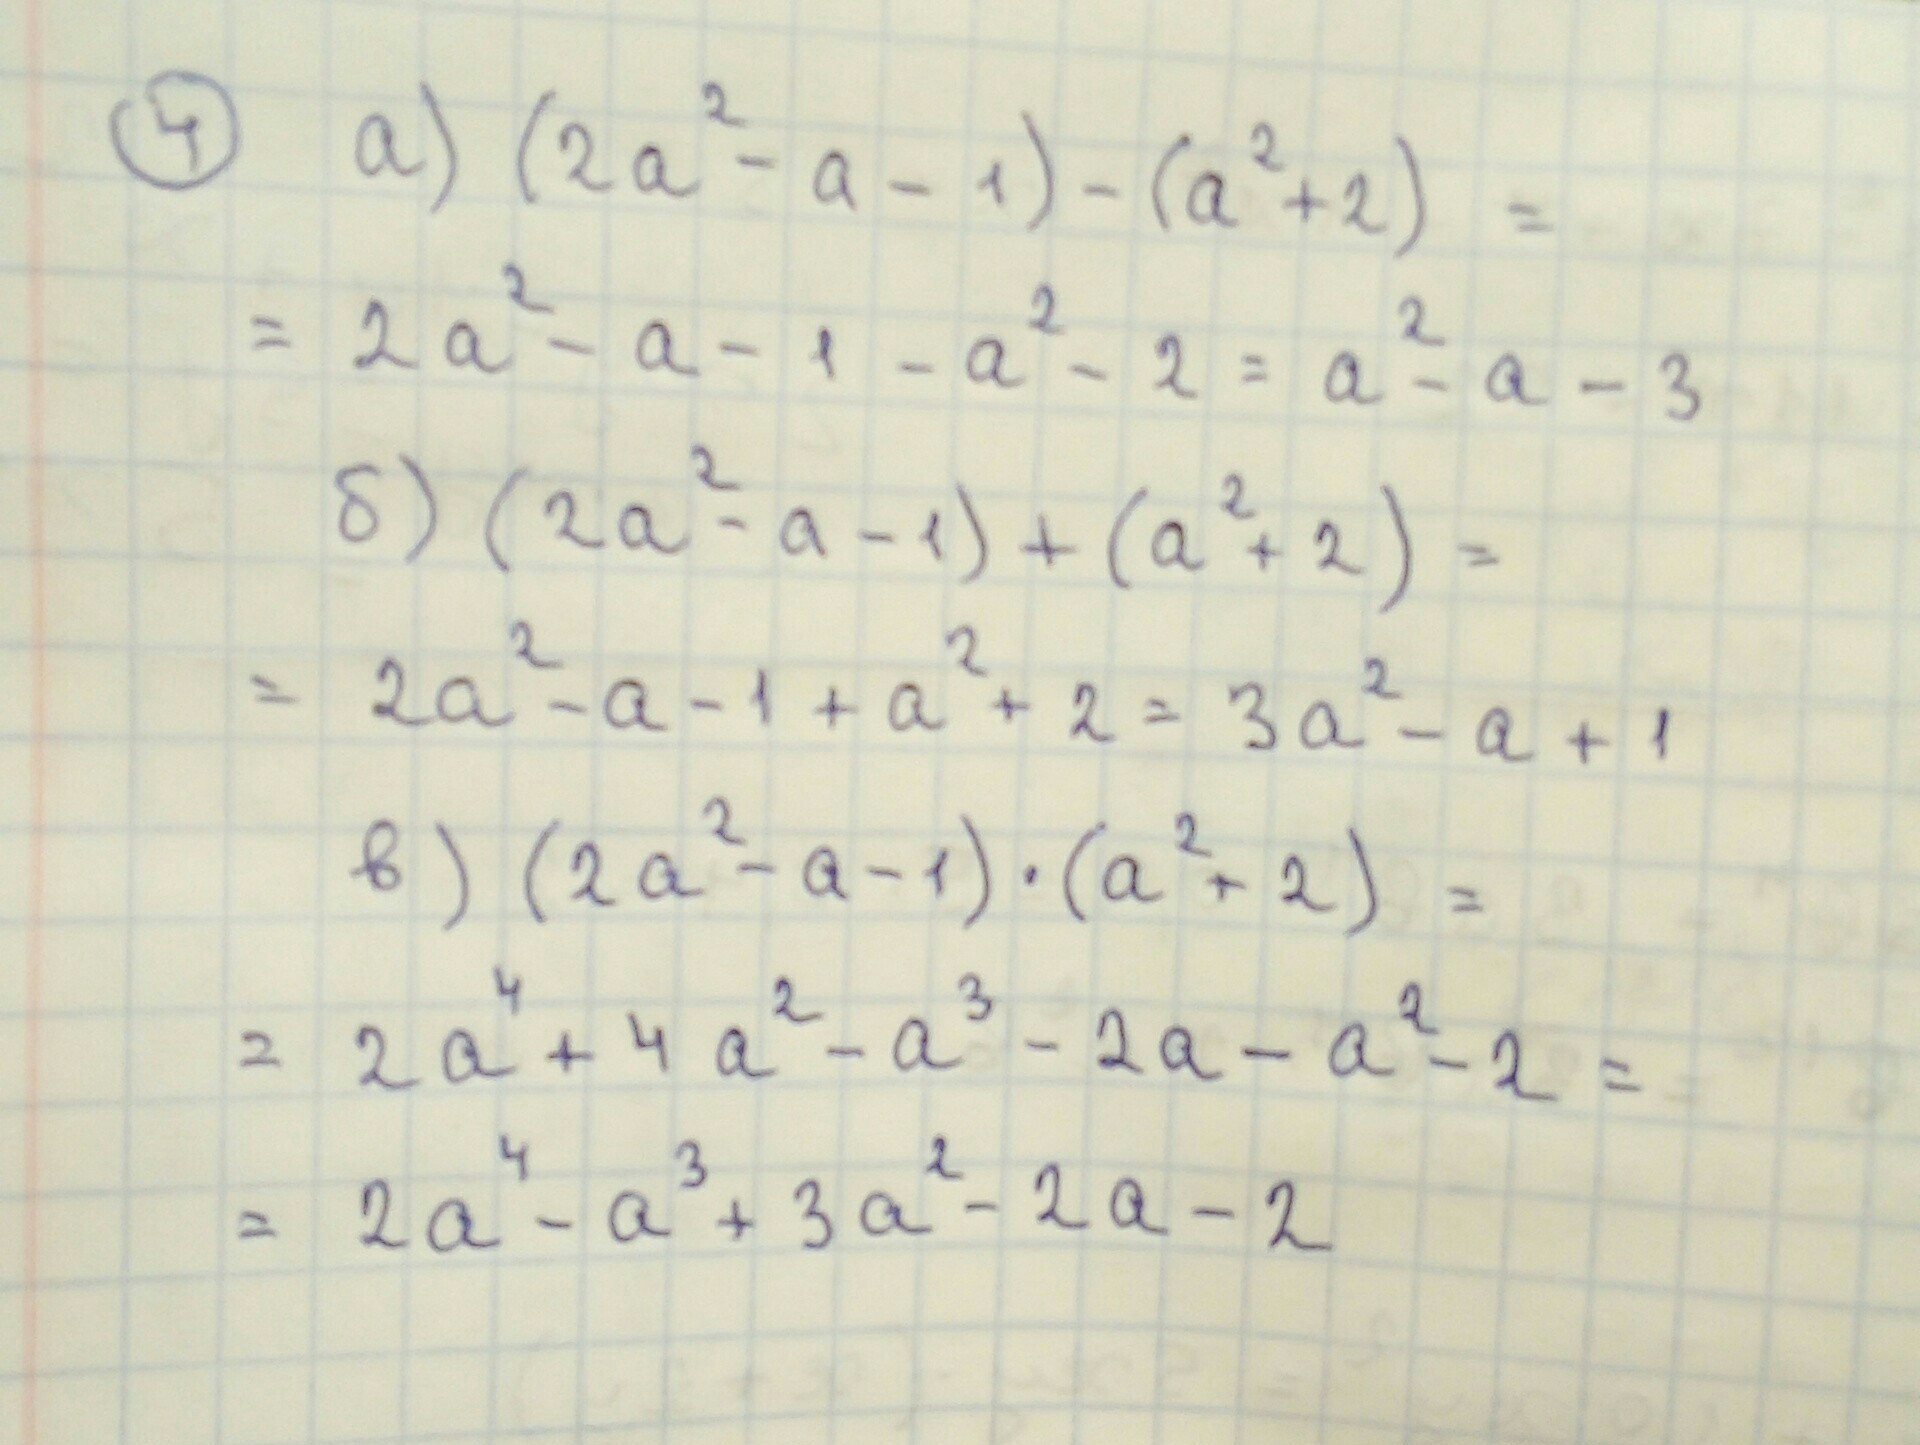 4 а) (2a² - a - 1) - (a² + 2) =
= 2a² - a - 1 - a² - 2 = a² - a - 3
б) (2a² - a - 1) + (a² + 2) =
= 2a² - a - 1 + a² + 2 = 3a² - a + 1
в) (2a² - a - 1) · (a² + 2) =
= 2a⁴ + 4a² - a³ - 2a - a² - 2 =
= 2a⁴ - a³ + 3a² - 2a - 2